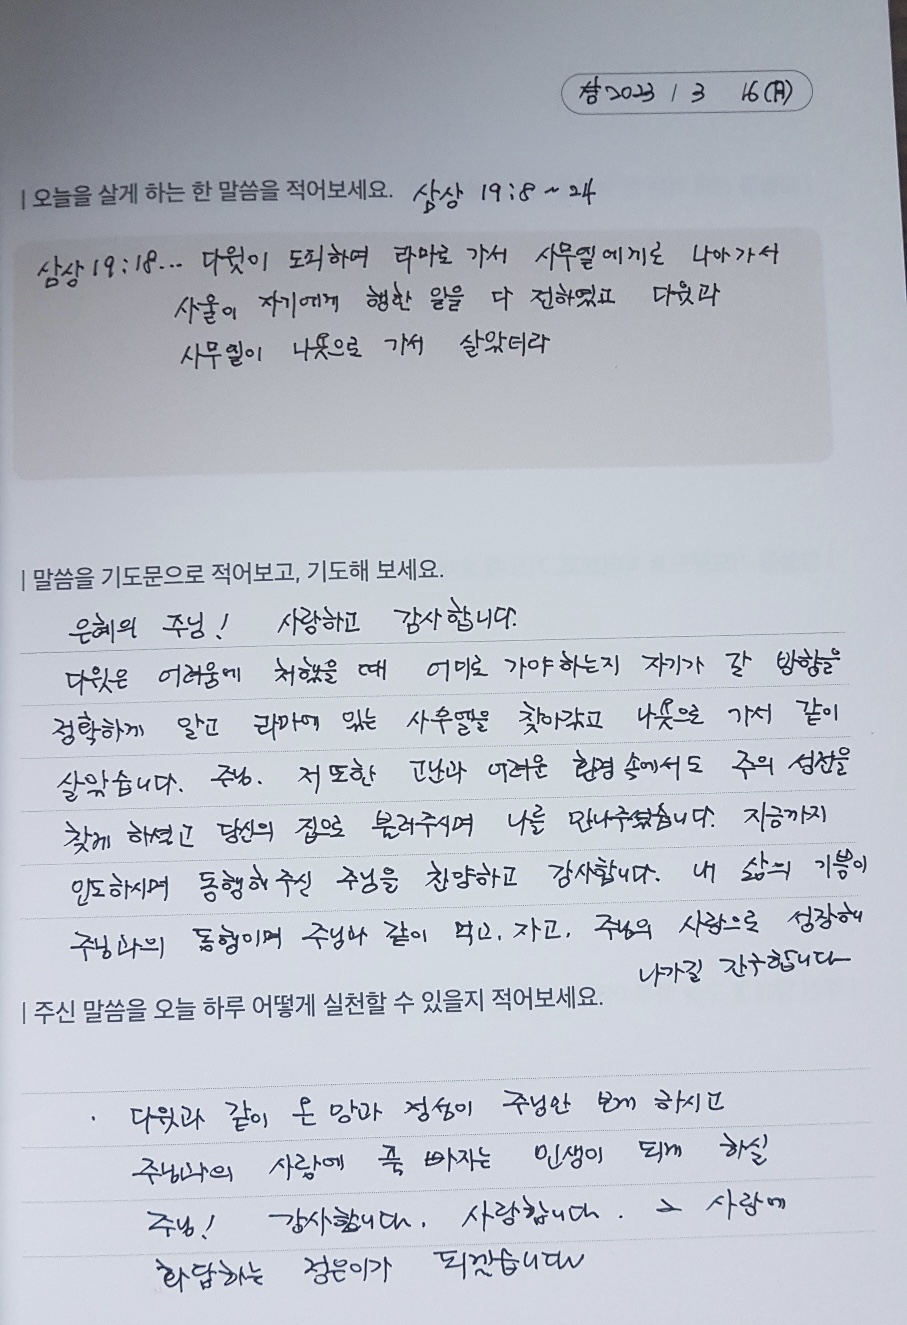 2023 / 3 16(月)
| 오늘을 살게 하는 한 말씀을 적어보세요. 삼상 19:8 ~ 24
삼상 19:18... 다윗이 도피하여 라마로 가서 사무엘에게로 나아가서
사울이 자기에게 행한 일을 다 전하였고 다윗과
사무엘이 나욧으로 가서 살았더라
| 말씀을 기도문으로 적어보고, 기도해 보세요.
은혜의 주님! 사랑하고 감사합니다.
다윗은 어려움에 처했을 때 어디로 가야 하는지 자기가 갈 방향을
정확하게 알고 라마에 있는 사무엘을 찾아갔고 나욧으로 가서 같이
살았습니다. 주님. 저 또한 고난과 어려운 환경 속에서도 주의 성전을
찾게 하셨고 당신의 집으로 불러주시며 나를 만나주셨습니다. 지금까지
인도하시며 동행해 주신 주님을 찬양하고 감사합니다. 내 삶의 기쁨이
주님과의 동행이며 주님과 같이 먹고, 자고, 주님의 사랑으로 성장해
나가길 간구합니다
| 주신 말씀을 오늘 하루 어떻게 실천할 수 있을지 적어보세요.
· 다윗과 같이 온 맘과 정성이 주님만 보게 하시고
주님과의 사랑에 푹 빠지는 인생이 되게 하실
주님! 감사합니다. 사랑합니다. 그 사랑에
화답하는 정은이가 되겠습니다